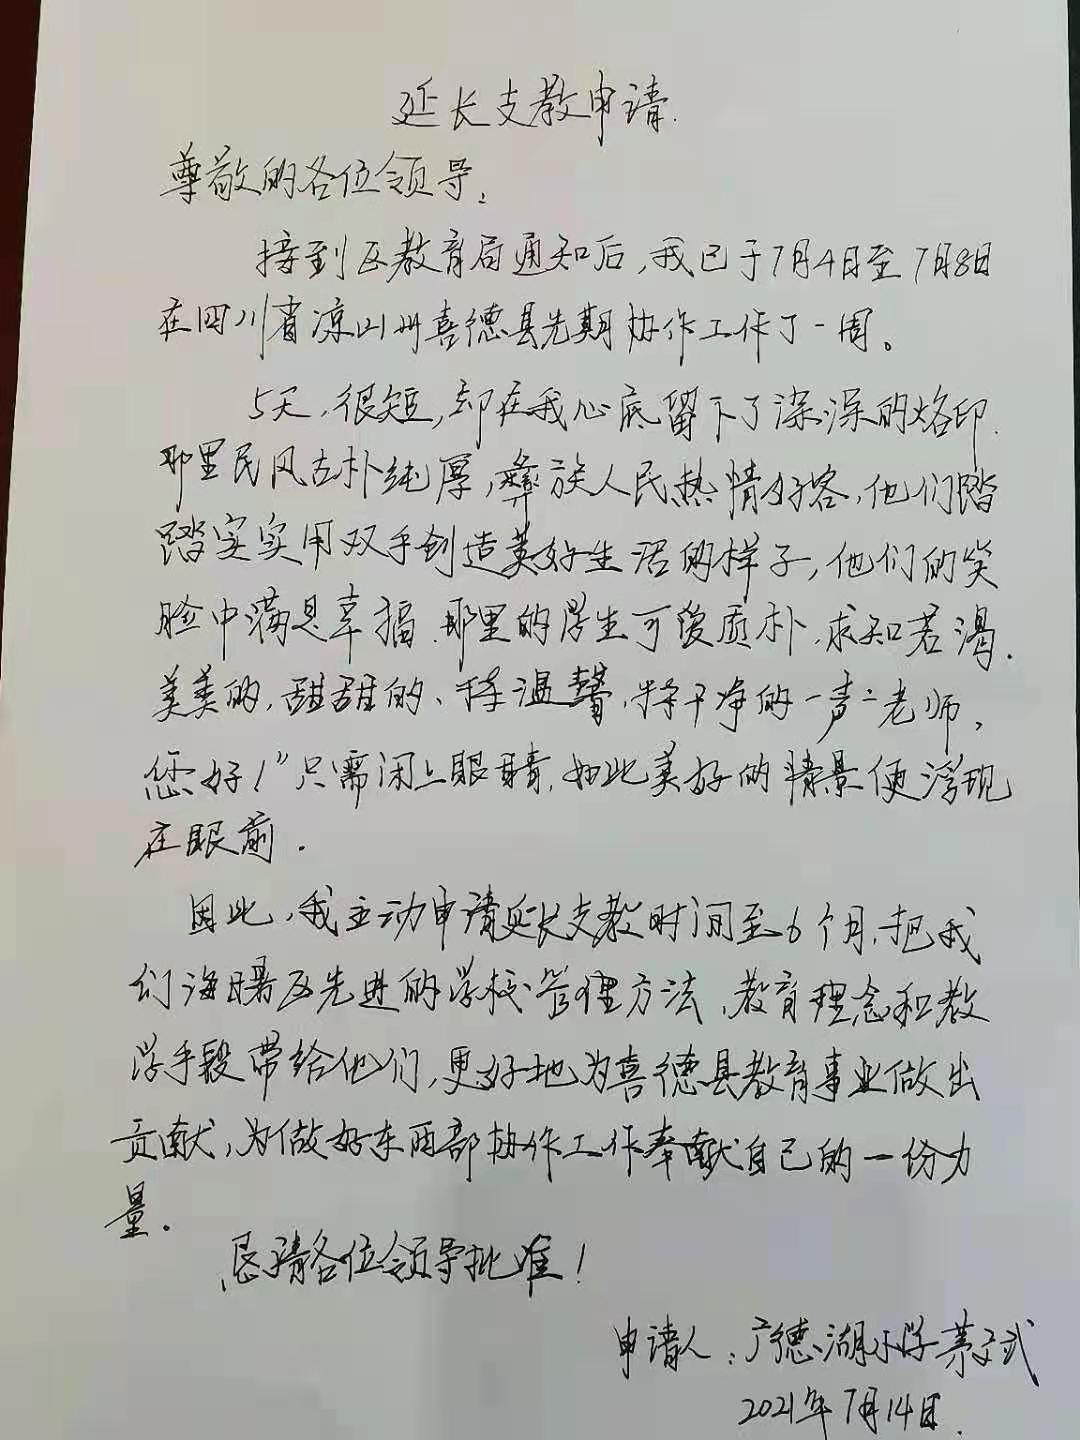 延长支教申请.
尊敬的各位领导:
接到区教育局通知后,我已于7月4日至7月8日
在四川省凉山州喜德县先期协作工作了一周。
5天,很短,却在我心底留下了深深的烙印.
那里民风古朴纯厚,彝族人民热情好客,他们踏
踏实实用双手创造美好生活的样子,他们的笑
脸中满是幸福.那里的学生可爱质朴,求知若渴.
美美的,甜甜的、特温馨,特干净的一声"老师,
您好!"只需闭上眼睛,如此美好的情景便浮现
在眼前.
因此,我主动申请延长支教时间至6个月,把我
们海曙区先进的学校管理方法、教育理念和教
学手段带给他们,更好地为喜德县教育事业做出
贡献,为做好东西部协作工作奉献自己的一份力
量.
恳请各位领导批准!
申请人:广德湖小学 茅武
2021年7月14日.